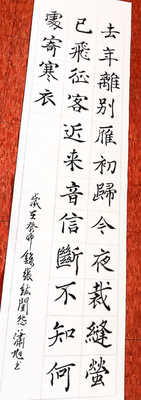 去年離別雁初歸今夜裁縫螢
已飛征客近来音信斷不知何
處寄寒衣
歲在癸卯錄張紘閨怨瀟旭书